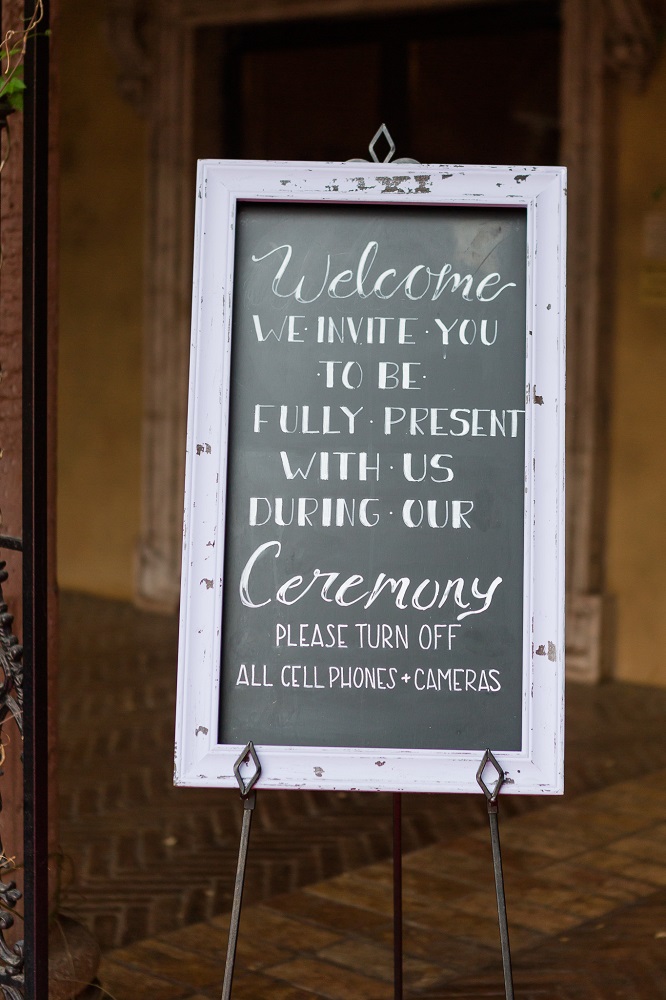 Welcome
WE·INVITE·YOU
·TO·BE·
FULLY·PRESENT
WITH·US
DURING·OUR
Ceremony
PLEASE TURN OFF
ALL CELL PHONES + CAMERAS